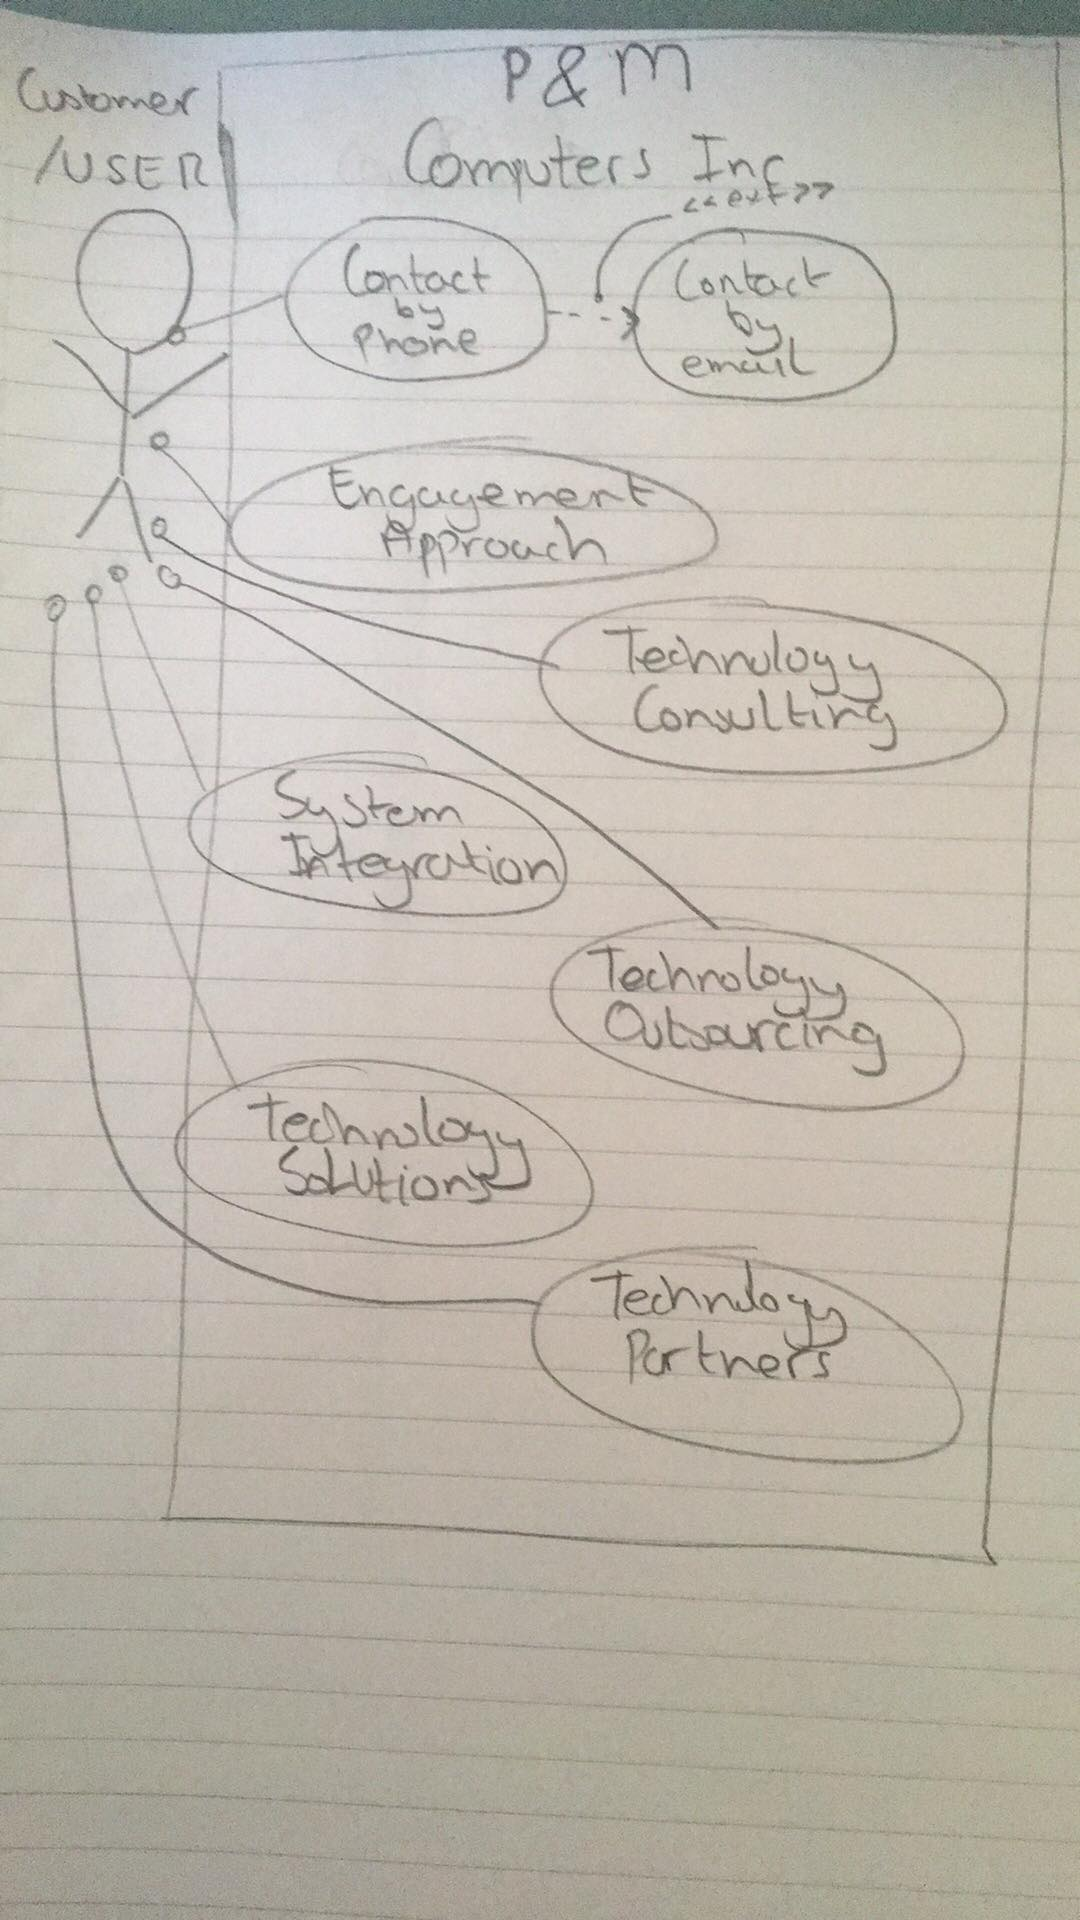 P & M
Customer
/USER
Computers Inc
<<ext>>
Contact
by
Phone
Contact
by
email
Engagement
Approach
Technology
Consulting
System
Integration
Technology
Outsourcing
Technology
Solutions
Technology
Partners